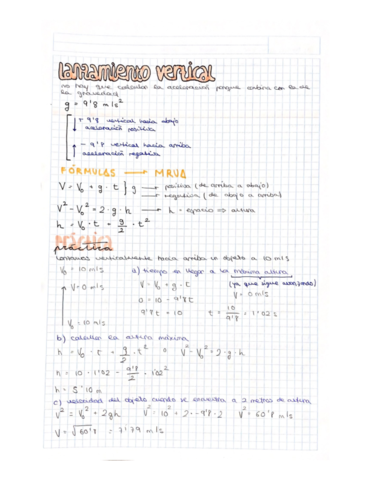 lanzamiento vertical
no hay que calcular la aceleración porque actúa con la de
la gravedad
g = 9'8 m/s²
+ 9'8 vertical hacia abajo
aceleración positiva
- 9'8 vertical hacia arriba
aceleración negativa
FÓRMULAS → MRUA
V - V₀ = g · t } g → positiva (de arriba a abajo)
→ negativa (de abajo a arriba)
V² - V₀² = 2 · g · h → h = espacio ⇒ altura
h = V₀ · t = g/2 · t²
práctica
Lanzamos verticalmente hacia arriba un objeto a 10 m/s
V₀ = 10 m/s a) tiempo en llegar a la máxima altura
V = 0 m/s V - V₀ = g · t (ya que sigue
V = 0 m/s
0 - 10 = -9'8t
9'8t = 10 t = 10/9'8 = 1'02 s
V₀ = 10 m/s
b) calcular la altura máxima
h = V₀ · t = g/2 · t² o V² - V₀² = 2 · g · h
h = 10 · 1'02 - 9'8/2 · 1'02²
h = 5'10 m
c) velocidad del objeto cuando se encuentra a 2 metros de altura
V² = V₀² + 2gh V² = 10² + 2 · -9'8 · 2 V² = 60'8 m/s
V = √60'8 = 7'79 m/s